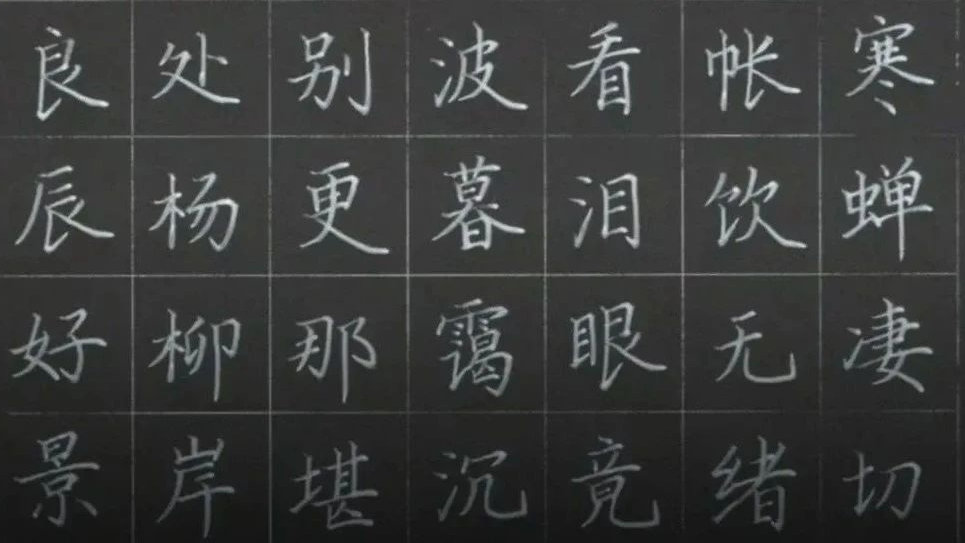 寒蝉凄切
帐饮无绪
看泪眼竟
波暮霭沉
别更那堪
处杨柳岸
良辰好景